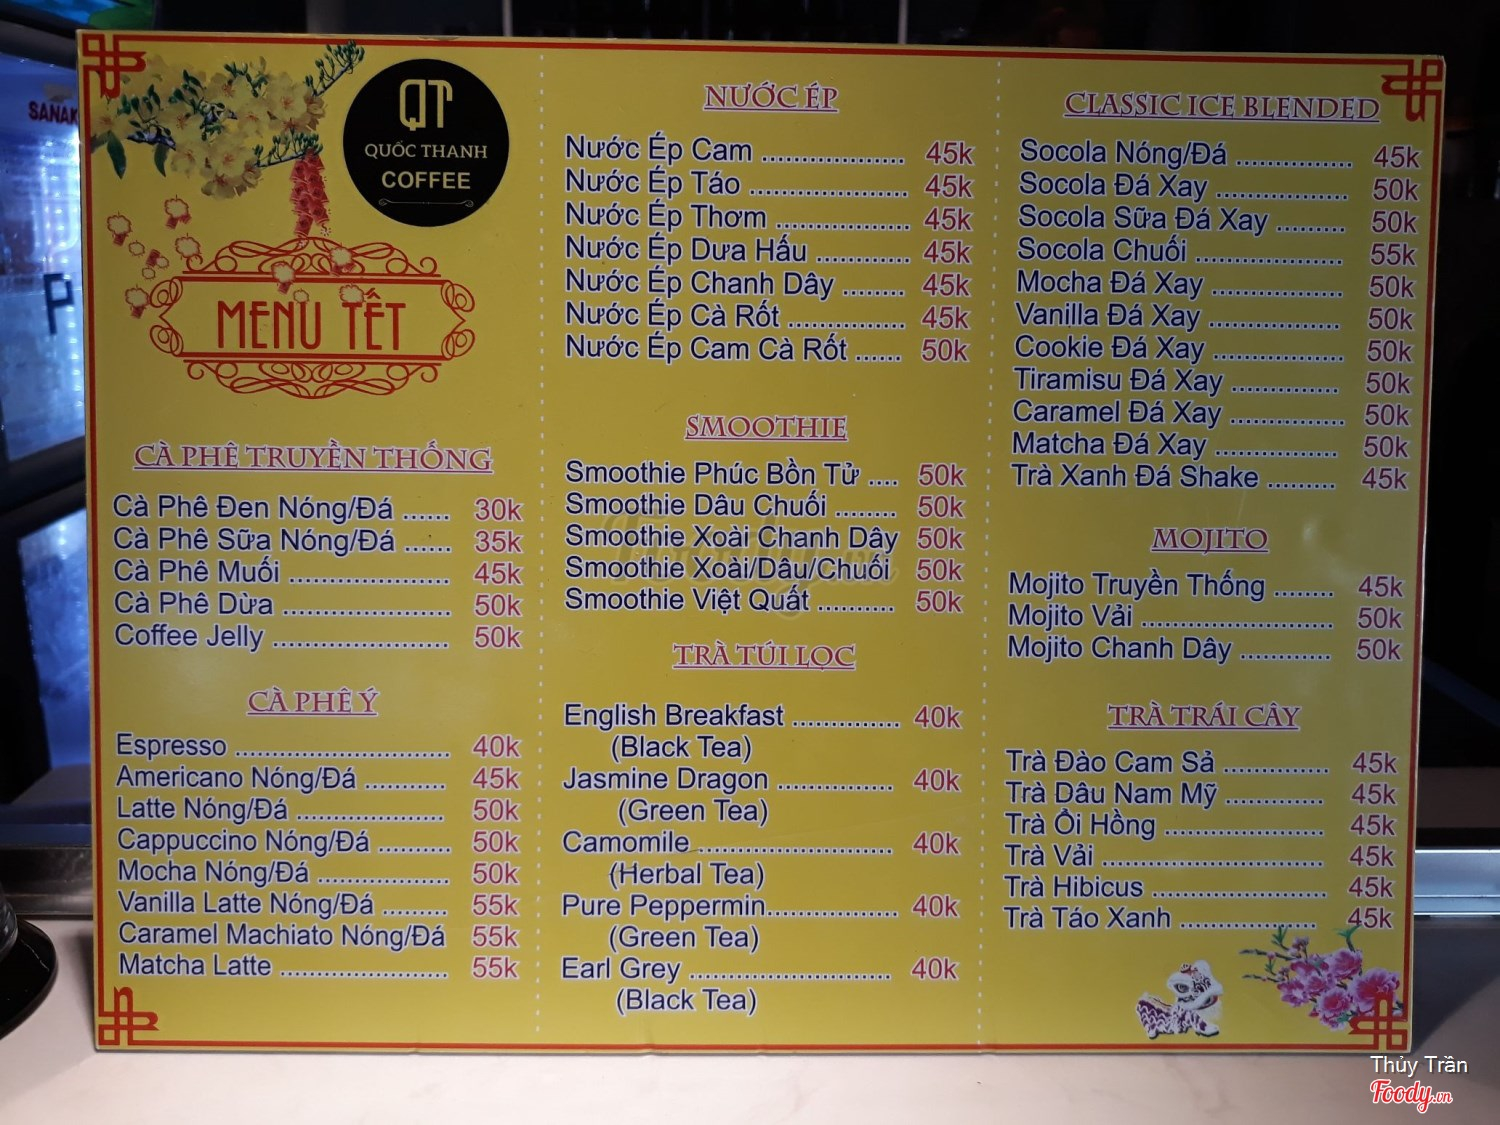 SANAK
QT
QUỐC THANH
COFFEE
MENU TẾT
CÀ PHÊ TRUYỀN THỐNG
Cà Phê Đen Nóng/Đá ...... 30k
Cà Phê Sữa Nóng/Đá ...... 35k
Cà Phê Muối .................. 45k
Cà Phê Dừa ................... 50k
Coffee Jelly .................... 50k
CÀ PHÊ Ý
Espresso ........................ 40k
Americano Nóng/Đá ......... 45k
Latte Nóng/Đá ................. 50k
Cappuccino Nóng/Đá ........ 50k
Mocha Nóng/Đá ............... 50k
Vanilla Latte Nóng/Đá ....... 55k
Caramel Machiato Nóng/Đá 55k
Matcha Latte ................... 55k
NƯỚC ÉP
Nước Ép Cam .................. 45k
Nước Ép Táo .................... 45k
Nước Ép Thơm ................. 45k
Nước Ép Dưa Hấu ............ 45k
Nước Ép Chanh Dây ........ 45k
Nước Ép Cà Rốt ............... 45k
Nước Ép Cam Cà Rốt ...... 50k
SMOOTHIE
Smoothie Phúc Bồn Tử .... 50k
Smoothie Dâu Chuối ........ 50k
Smoothie Xoài Chanh Dây 50k
Smoothie Xoài/Dâu/Chuối 50k
Smoothie Việt Quất .......... 50k
TRÀ TÚI LỌC
English Breakfast .............. 40k
(Black Tea)
Jasmine Dragon ............... 40k
(Green Tea)
Camomile ......................... 40k
(Herbal Tea)
Pure Peppermin................. 40k
(Green Tea)
Earl Grey .......................... 40k
(Black Tea)
CLASSIC ICE BLENDED
Socola Nóng/Đá ............... 45k
Socola Đá Xay ................. 50k
Socola Sữa Đá Xay ......... 50k
Socola Chuối ................... 55k
Mocha Đá Xay ................. 50k
Vanilla Đá Xay ................. 50k
Cookie Đá Xay ................. 50k
Tiramisu Đá Xay .............. 50k
Caramel Đá Xay ............... 50k
Matcha Đá Xay ................. 50k
Trà Xanh Đá Shake ......... 45k
MOJITO
Mojito Truyền Thống ........ 45k
Mojito Vải ......................... 50k
Mojito Chanh Dây ............ 50k
TRÀ TRÁI CÂY
Trà Đào Cam Sả .............. 45k
Trà Dâu Nam Mỹ ............. 45k
Trà Ổi Hồng ..................... 45k
Trà Vải ............................. 45k
Trà Hibicus ....................... 45k
Trà Táo Xanh ................... 45k
Thủy Trần
Foody.vn